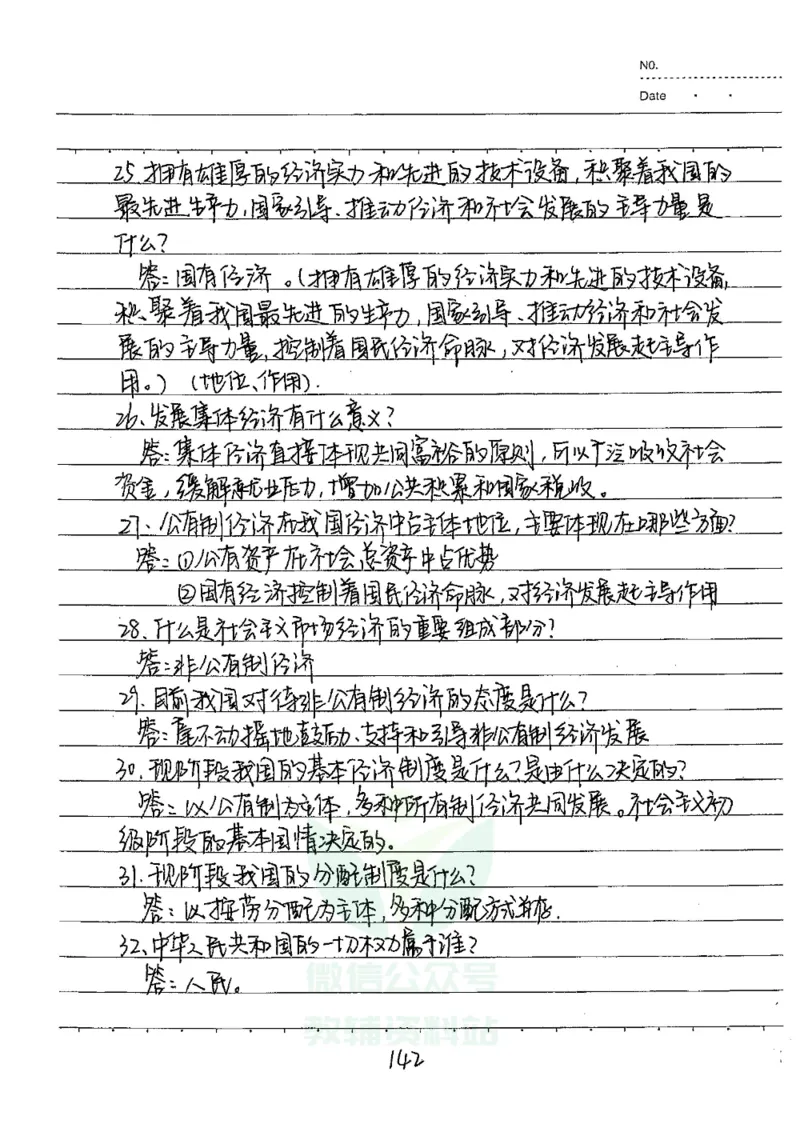 NO.
Date
25.拥有雄厚的经济实力和先进的技术设备,积聚着我国的
最先进生产力,国家引导、推动经济和社会发展的主导力量是
什么?
答:国有经济。(拥有雄厚的经济实力和先进的技术设备,
积聚着我国最先进的生产力,国家引导、推动经济和社会发
展的主导力量,控制着国民经济命脉,对经济发展起主导作
用。)(地位、作用).
26、发展集体经济有什么意义?
答:集体经济直接体现共同富裕的原则,可以广泛吸收社会
资金,缓解就业压力,增加公共积累和国家税收。
27、公有制经济在我国经济中占主体地位,主要体现在哪些方面?
答:①公有资产在社会总资产中占优势
②国有经济控制着国民经济命脉,对经济发展起主导作用
28、什么是社会主义市场经济的重要组成部分?
答:非公有制经济
29.目前我国对待非公有制经济的态度是什么?
答:毫不动摇地鼓励、支持和引导非公有制经济发展
30.现阶段我国的基本经济制度是什么?是由什么决定的?
答:以公有制为主体,多种所有制经济共同发展。社会主义初
级阶段的基本国情决定的。
31.现阶段我国的分配制度是什么?
答:以按劳分配为主体,多种分配方式并存.
32、中华人民共和国的一切权力属于谁?
答:人民。
微信公众号
教辅资料站
142